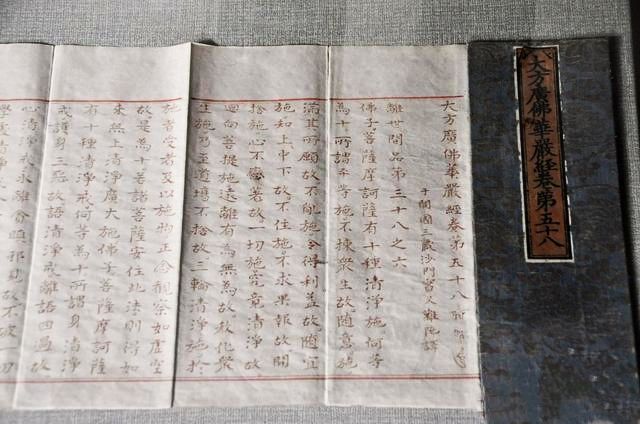 大方廣佛華嚴經卷第五十八
大方廣佛華嚴經卷第五十八
于闐國三藏沙門實叉難陀譯
離世間品第三十八之六
佛子菩薩摩訶薩有十種清淨施何等
為十所謂平等施不揀眾生故隨意施
滿其所願故不亂施令得利益故隨宜
施知上中下故不住施不求果報故開
捨施心不戀著故一切施究竟清淨故
迴向菩提施遠離有為無為故教化眾
生施乃至道場不捨故三輪清淨施於
施者受者及以施物正念觀察如虛空
故是為十若諸菩薩安住此法則得如
來無上清淨廣大施佛子菩薩摩訶薩
有十種清淨戒何等為十所謂身清淨
戒護身三惡故語清淨戒離語四過故
心清淨戒永離貪瞋邪見故不破一切
學處清淨